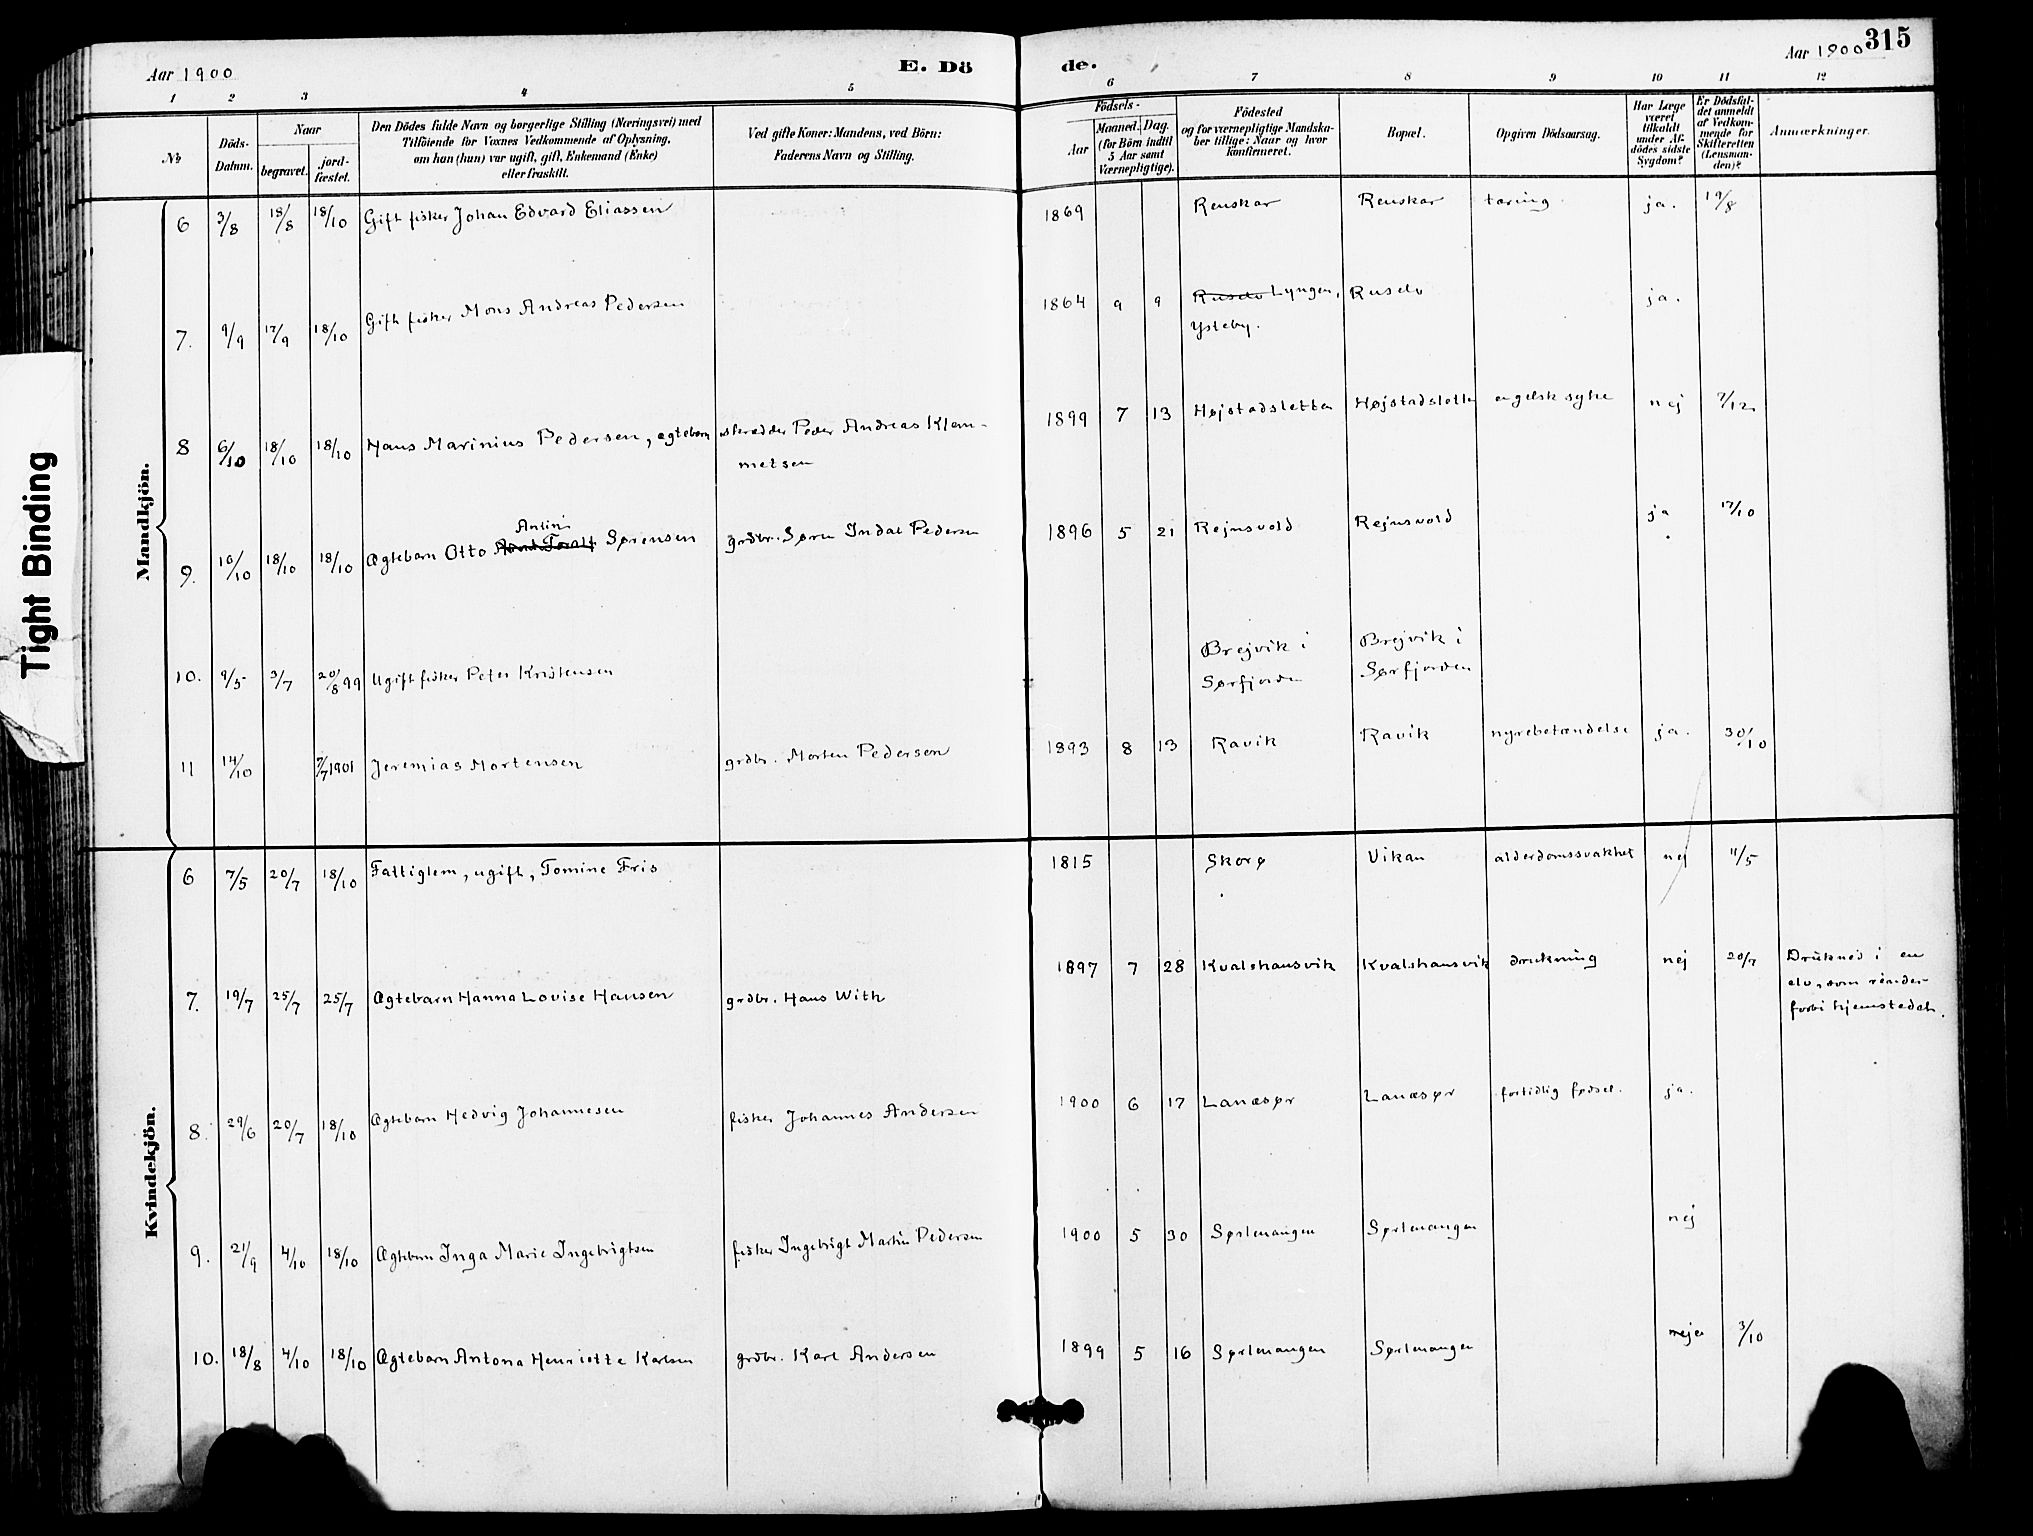 Aar 1900
E. Dö
de.
Aar 1900
315
1 2 3 4 5 6 7 8 9 10 11 12
No
Döds-
Datum.
Naar
begravet.
jord-
fæstet.
Den Dödes fulde Navn og borgerlige Stilling (Næringsvei) med
Tilföiende for Voxnes Vedkommende af Oplysning,
om han (hun) var ugift, gift, Enkemand (Enke)
eller fraskilt.
Ved gifte Koner: Mandens, ved Börn:
Faderens Navn og Stilling.
Födsels-
Aar
Maaned. Dag.
(for Börn indtil
5 Aar samt
Værnepligtige).
Födested
og for værnepligtige Mandska-
ber tillige: Naar og hvor
konfirmeret.
Bopæl.
Opgiven Dödsaarsag.
Har Læge
været
tilkaldt
under Af-
dödes sidste
Sygdom?
Er Dödsfal-
det anmeldt
af Vedkom-
mende for
Skifteretten
(Lensman-
den)?
Anmærkninger.
Tight Binding
Mandkjön.
6 3/8 18/8 18/10 Gift fisker Johan Edvard Eliassen 1869 Renskar Renskar tæring ja. 19/8
7. 9/9 17/9 18/10 Gift fisker Mons Andreas Pedersen 1864 9 9 Ruselv Lyngen, Ruselv ja.
Ysteby.
8 6/10 18/10 18/10 Hans Marinius Pedersen, ægtebarn skrædder Peder Andreas Klem- 1899 7 13 Højstadsletten Højstadsletten engelsk syke nej 7/12
metsen
Antin
9. 10/10 18/10 18/10 Ægtebarn Otto Sørensen grdbr. Søren Indal Pedersen 1896 5 21 Rejnsvold Rejnsvold ja. 17/10
10. 9/5 3/7 20/8 99 Ugift fisker Peter Kristensen Brejvik i Brejvik i
Sørfjorden Sørfjorden
11 14/10 7/7 1901 Jeremias Mortensen grdbr. Morten Pedersen 1893 8 13 Ravik Ravik nyrebetændelse ja. 30/10
Kvindekjön.
6 7/5 20/7 18/10 Fattiglem, ugift, Tomine Fris 1815 Skorø Vikan alderdomssvakhet nej 11/5
7. 19/7 25/7 25/7 Ægtebarn Hanna Lovise Hansen grdbr. Hans With 1897 7 28 Kvalshausvik Kvalshausvik drukning nej 20/7 Drukned i en
elv, som rinder
forbi hjemstedet.
8. 29/6 20/7 18/10 Ægtebarn Hedvig Johannesen fisker Johannes Andersen 1900 6 17 Lanæsør Lanæsør fortidlig fødsel. ja.
9. 21/9 4/10 18/10 Ægtebarn Inga Marie Ingebrigtsen fisker Ingebrigt Martin Pedersen 1900 5 30 Sørlenangen Sørlenangen nej
10. 18/8 4/10 18/10 Ægtebarn Antona Henriette Karlsen grdbr. Karl Andersen 1899 5 16 Sørlenangen Sørlenangen nej 3/10